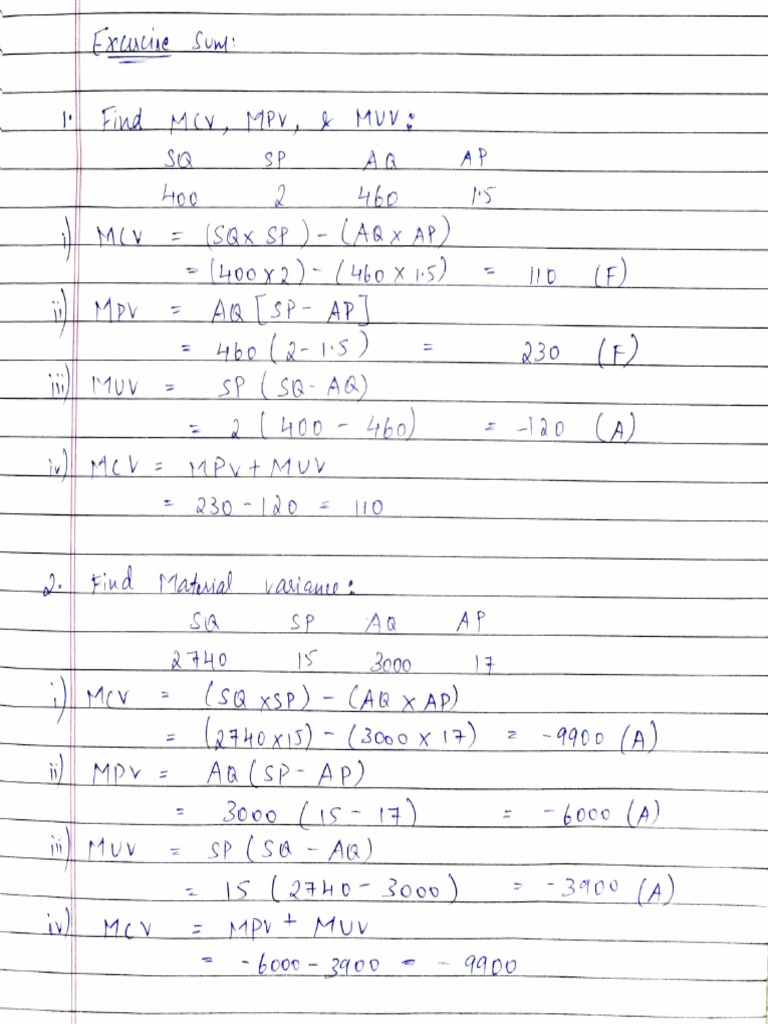 Excercise Sum:
1. Find MCV, MPV, & MUV:
SQ SP AQ AP
400 2 460 1.5
i) MCV = (SQ x SP) - (AQ x AP)
= (400 x 2) - (460 x 1.5) = 110 (F)
ii) MPV = AQ [SP - AP]
= 460 (2 - 1.5) = 230 (F)
iii) MUV = SP (SQ - AQ)
= 2 (400 - 460) = -120 (A)
iv) MCV = MPV + MUV
= 230 - 120 = 110
2. Find Material variance:
SQ SP AQ AP
2740 15 3000 17
i) MCV = (SQ x SP) - (AQ x AP)
= (2740 x 15) - (3000 x 17) = -9900 (A)
ii) MPV = AQ (SP - AP)
= 3000 (15 - 17) = -6000 (A)
iii) MUV = SP (SQ - AQ)
= 15 (2740 - 3000) = -3900 (A)
iv) MCV = MPV + MUV
= -6000 - 3900 = -9900